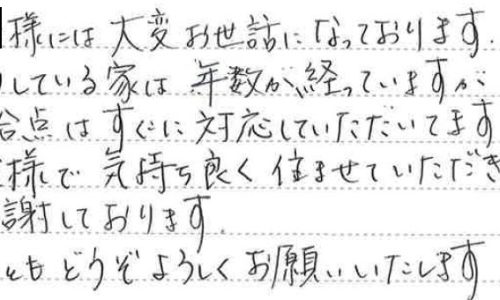 様には大変お世話になっております.
している家は年数が経っていますが
合点はすぐに対応していただいてます
様で気持ち良く住ませていただき
謝しております.
ともどうぞよろしくお願いいたします